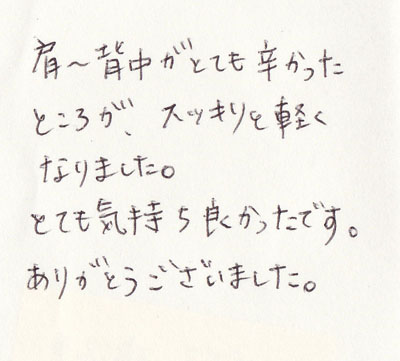 肩～背中がとても辛かった
ところが、スッキりと軽く
なりました。
とても気持ち良くかったです。
ありがとうございました。